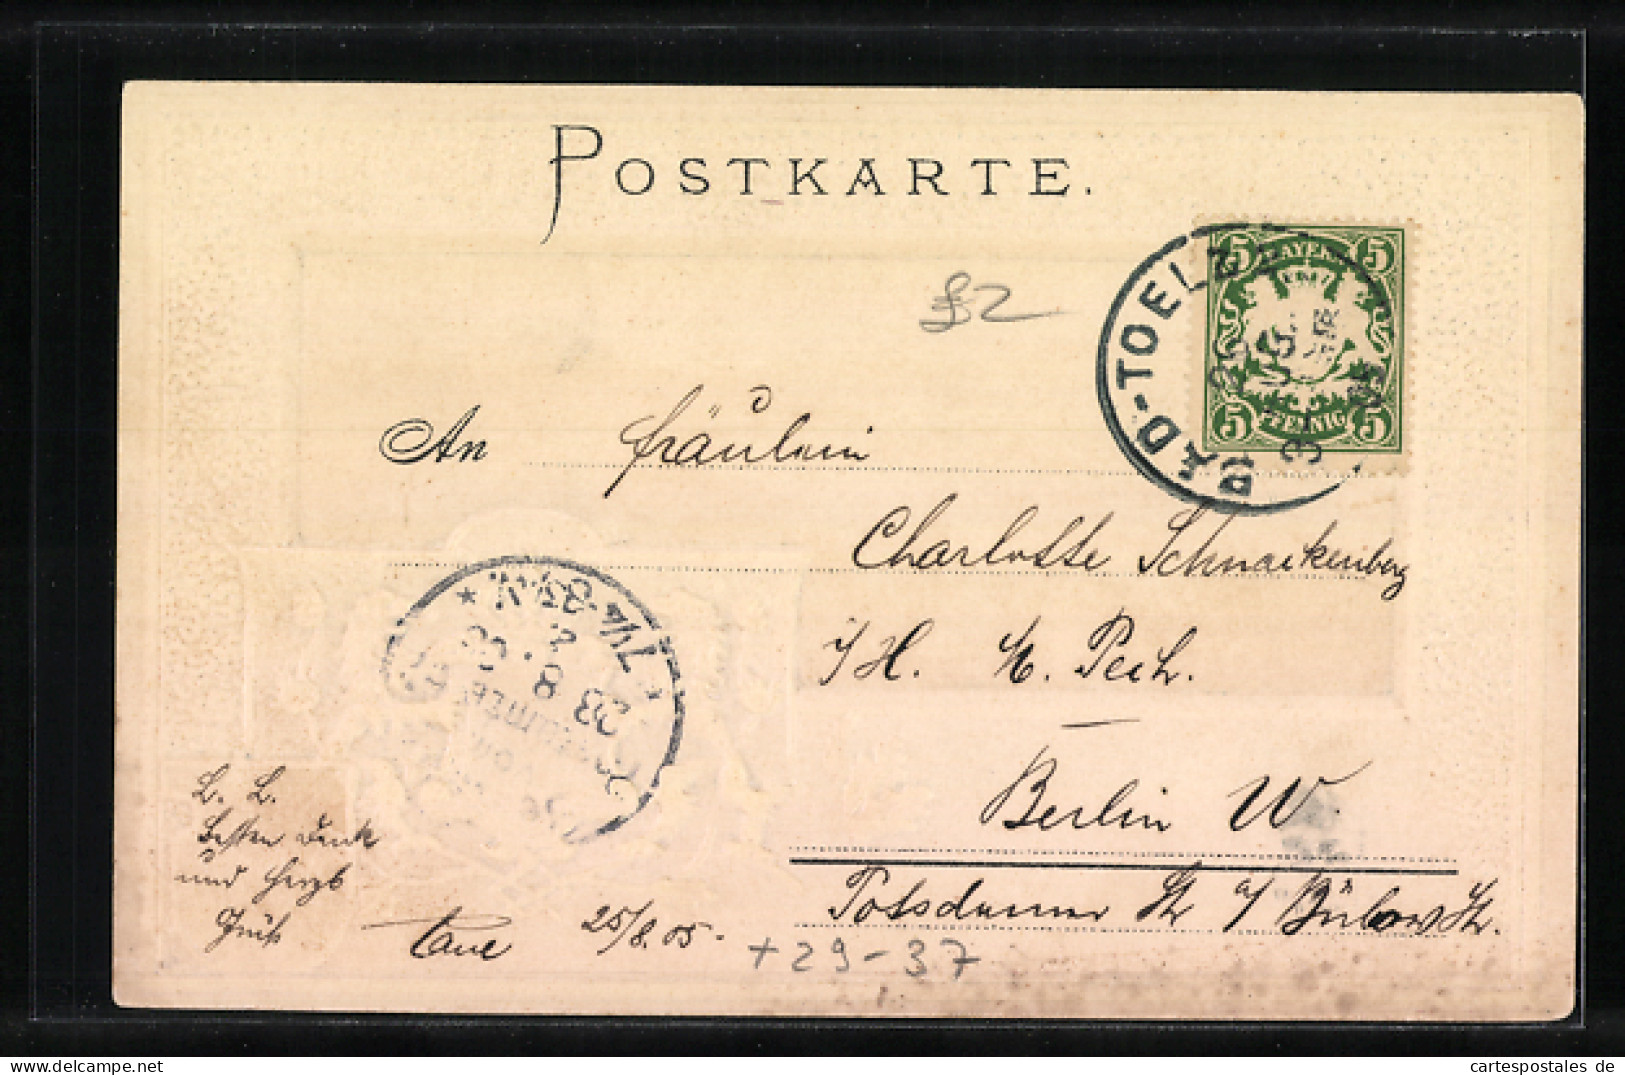 POSTKARTE.
5 BAYERN 5
5 PFENNIG 5
BAD-TOELZ
£2
An Fräulein
Charlotte Schnackenberg
i/H. E. Pech.
Berlin W.
Potsdamer Str a/ Bülow Str.
7¼-8½N.
L. L.
Besten Dank
und herzl
Gruß
25/8.05.
+29-37
cartespostales de